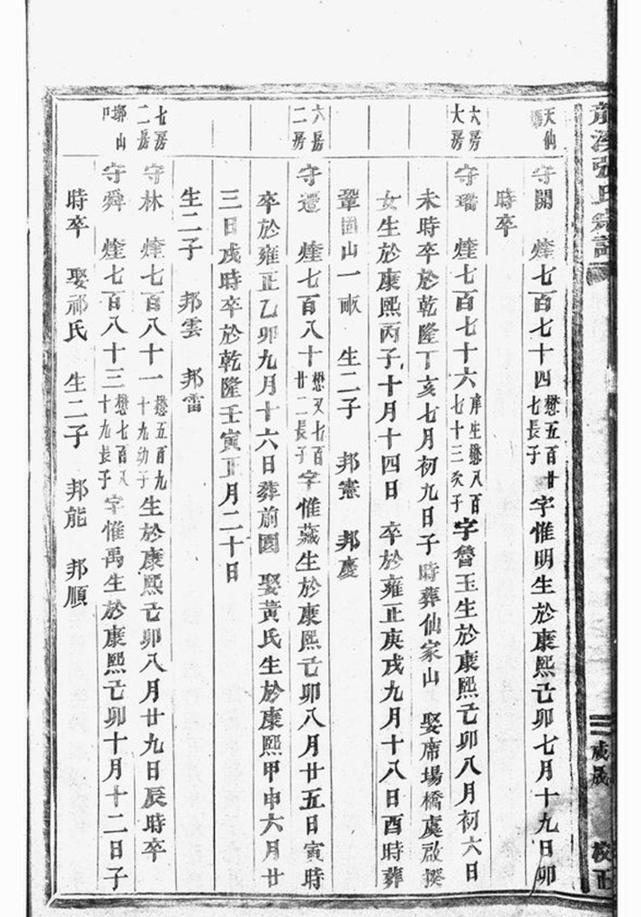 張氏宗譜
咸晟 校正
天仙
守開 煃七百七十四懋五百廿七長子字惟明生於康熙己卯七月十九日卯
時卒
六房大房
守璠 煃七百七十六庠生懋八百七十三次子字魯玉生於康熙己卯八月初六日
未時卒於乾隆丁亥七月初九日子時葬仙家山 娶席場橋處啟撰
女生於康熙丙子十月十四日 卒於雍正庚戌九月十八日酉時葬
鞏固山一畝 生二子 邦憲 邦慶
六房二房
守還 煃七百八十懋又七百廿二長子字惟藏生於康熙己卯八月廿五日寅時
卒於雍正乙卯九月十六日葬前園 娶黃氏生於康熙甲申六月廿
三日戌時卒於乾隆壬寅正月二十日
生二子 邦雲 邦雷
七房二房
守林 煃七百八十一懋五百九十九幼子生於康熙己卯八月廿九日辰時卒
山
守舜 煃七百八十三懋七百又十九長子字惟禹生於康熙己卯十月十二日子
時卒 娶祁氏 生二子 邦能 邦順